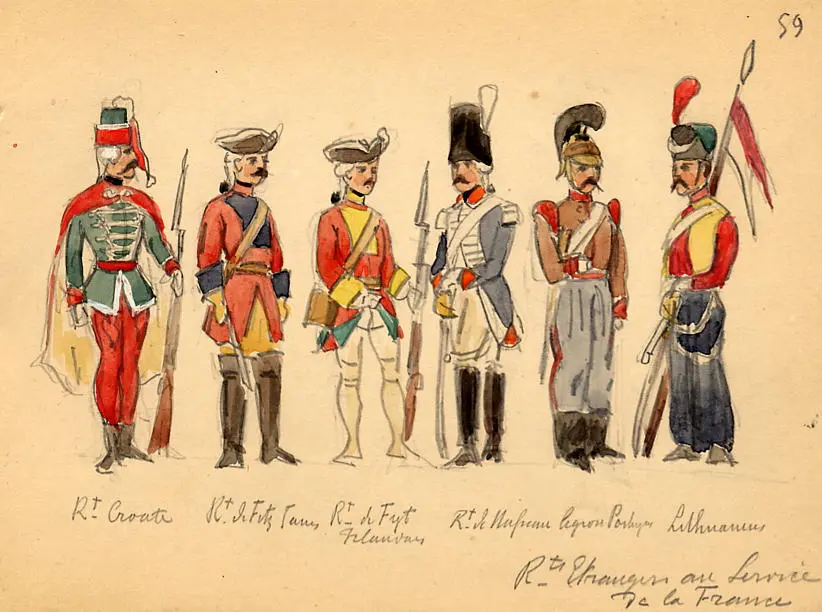 59
Rt Croate
Rt de Fitz James
Rt de
Irlandais
Rt de Nassau
Légion Portugs
Lithuaniens
Rts Etrangers au Service
De la France